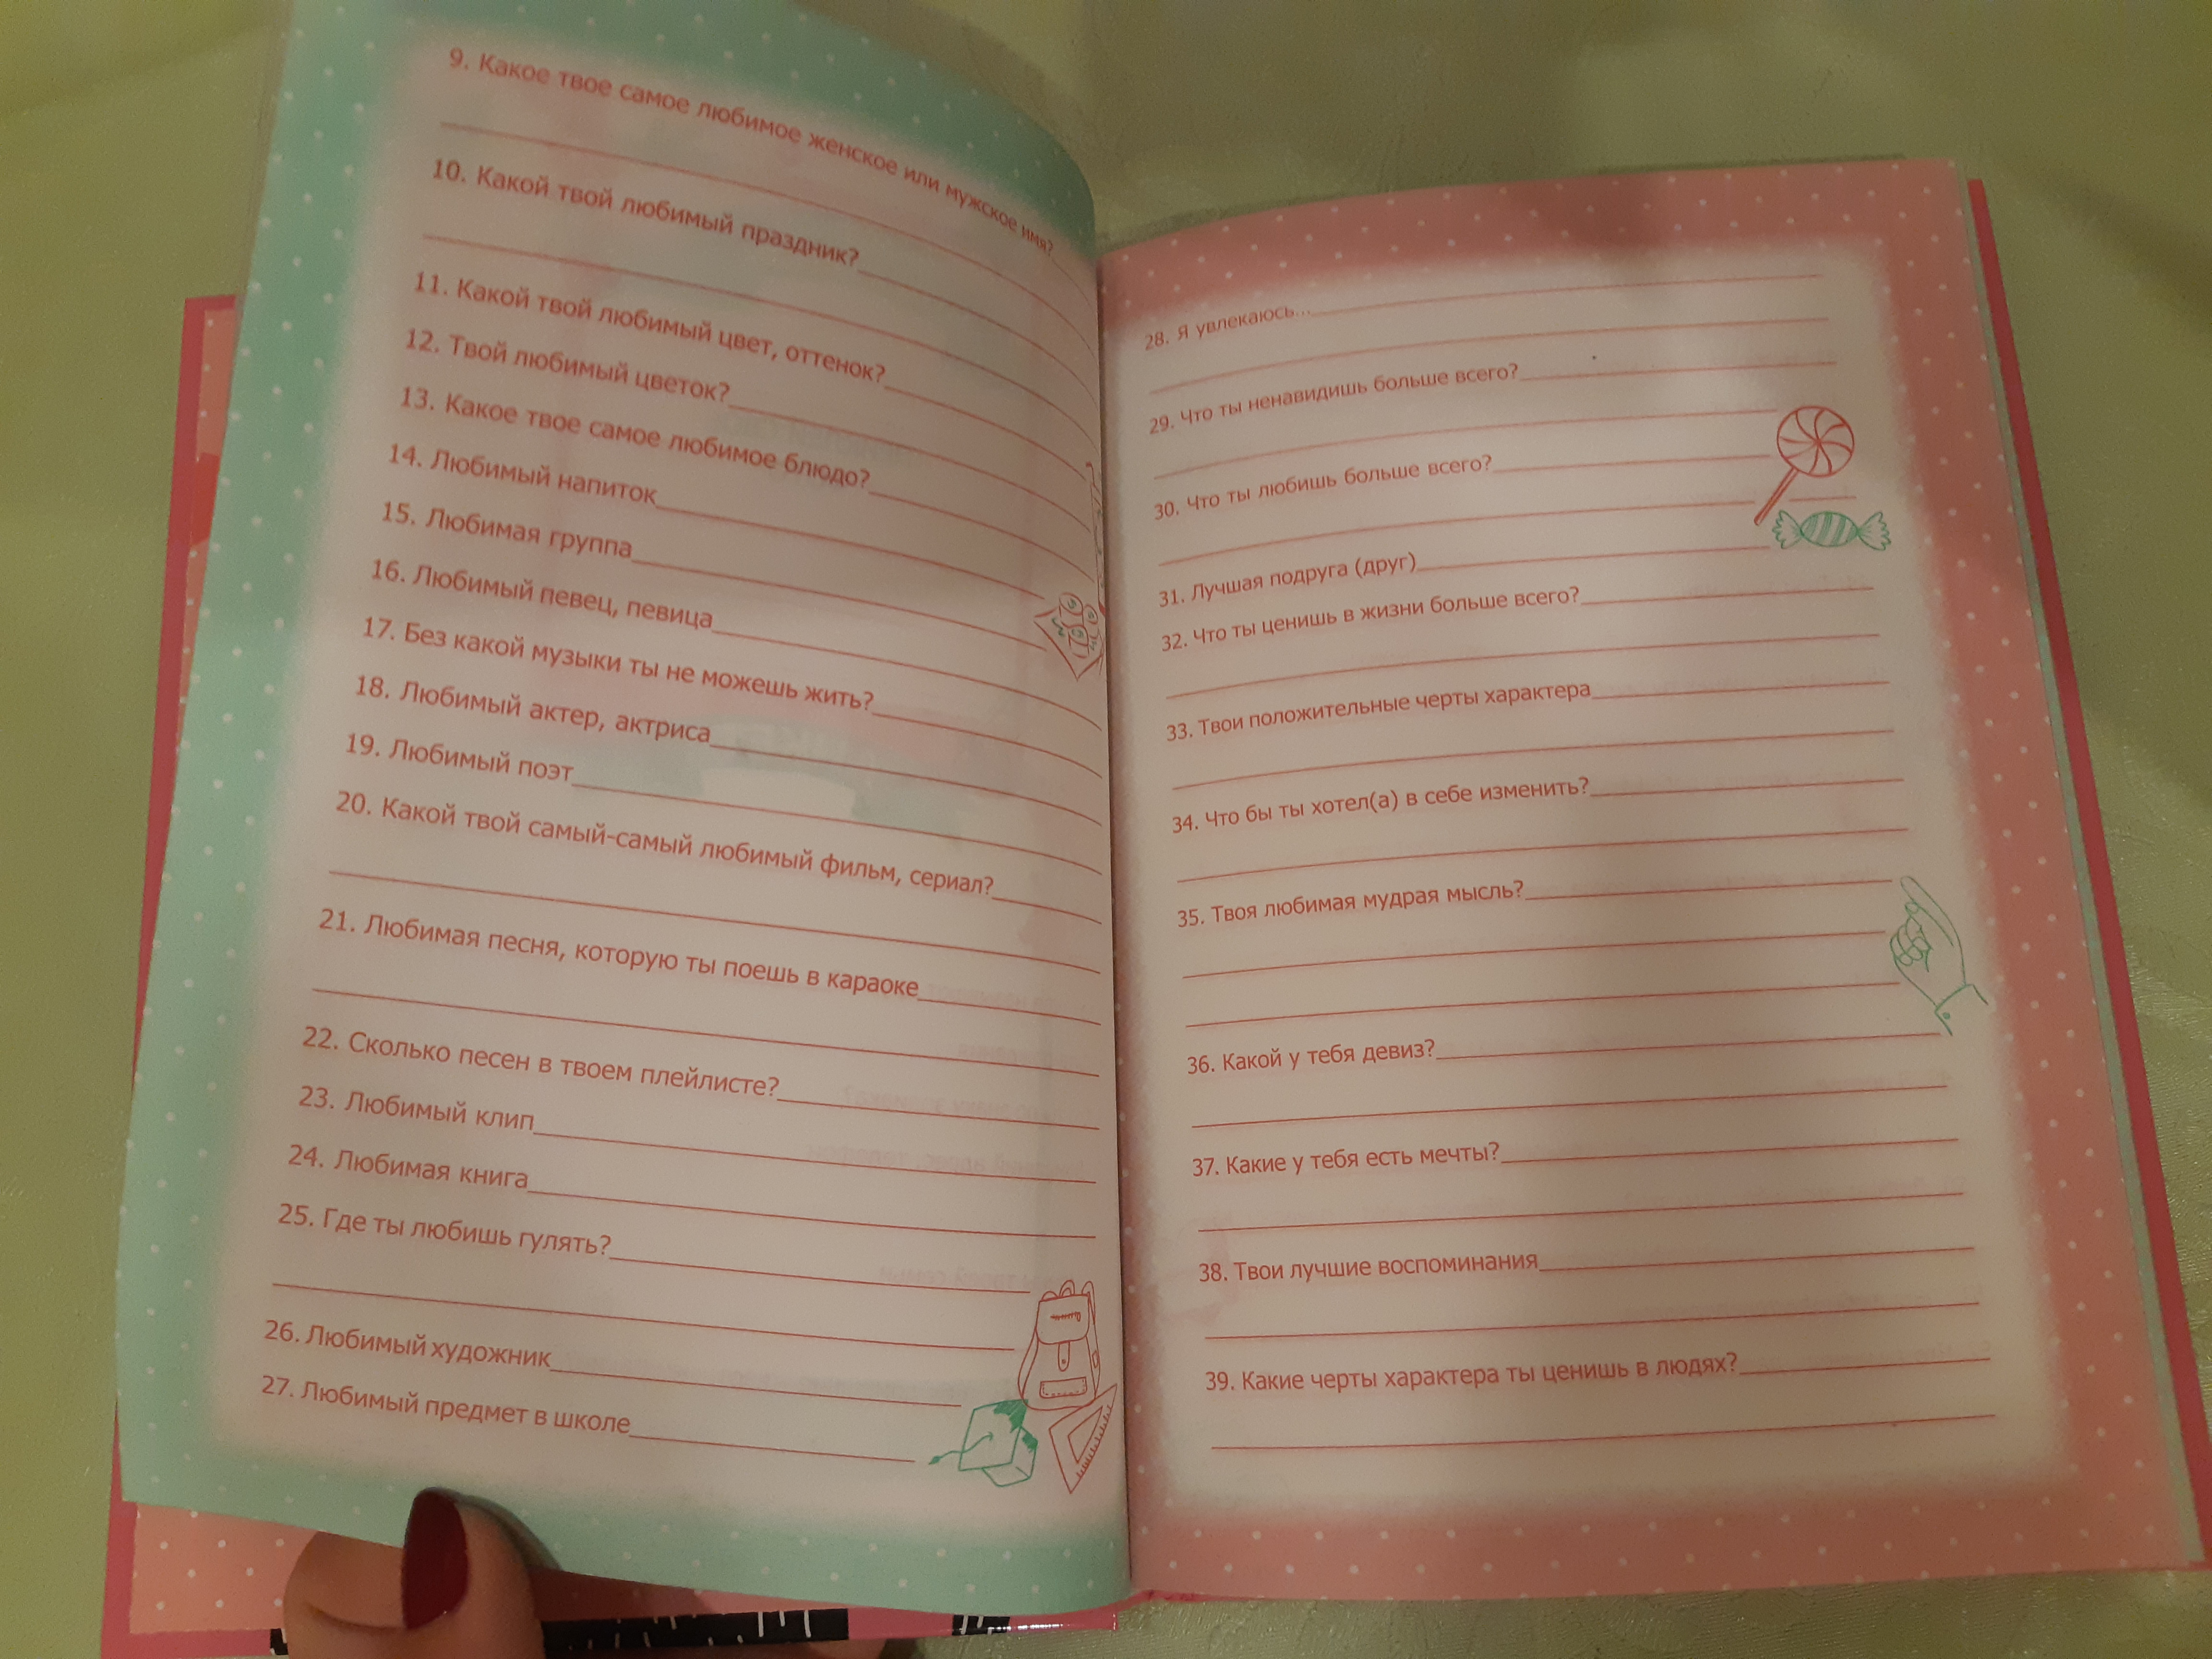 9. Какое твое самое любимое женское или мужское имя?
10. Какой твой любимый праздник?
11. Какой твой любимый цвет, оттенок?
12. Твой любимый цветок?
13. Какое твое самое любимое блюдо?
14. Любимый напиток
15. Любимая группа
16. Любимый певец, певица
17. Без какой музыки ты не можешь жить?
18. Любимый актер, актриса
19. Любимый поэт
20. Какой твой самый-самый любимый фильм, сериал?
21. Любимая песня, которую ты поешь в караоке
22. Сколько песен в твоем плейлисте?
23. Любимый клип
24. Любимая книга
25. Где ты любишь гулять?
26. Любимый художник
27. Любимый предмет в школе
28. Я увлекаюсь...
29. Что ты ненавидишь больше всего?
30. Что ты любишь больше всего?
31. Лучшая подруга (друг)
32. Что ты ценишь в жизни больше всего?
33. Твои положительные черты характера
34. Что бы ты хотел(а) в себе изменить?
35. Твоя любимая мудрая мысль?
36. Какой у тебя девиз?
37. Какие у тебя есть мечты?
38. Твои лучшие воспоминания
39. Какие черты характера ты ценишь в людях?